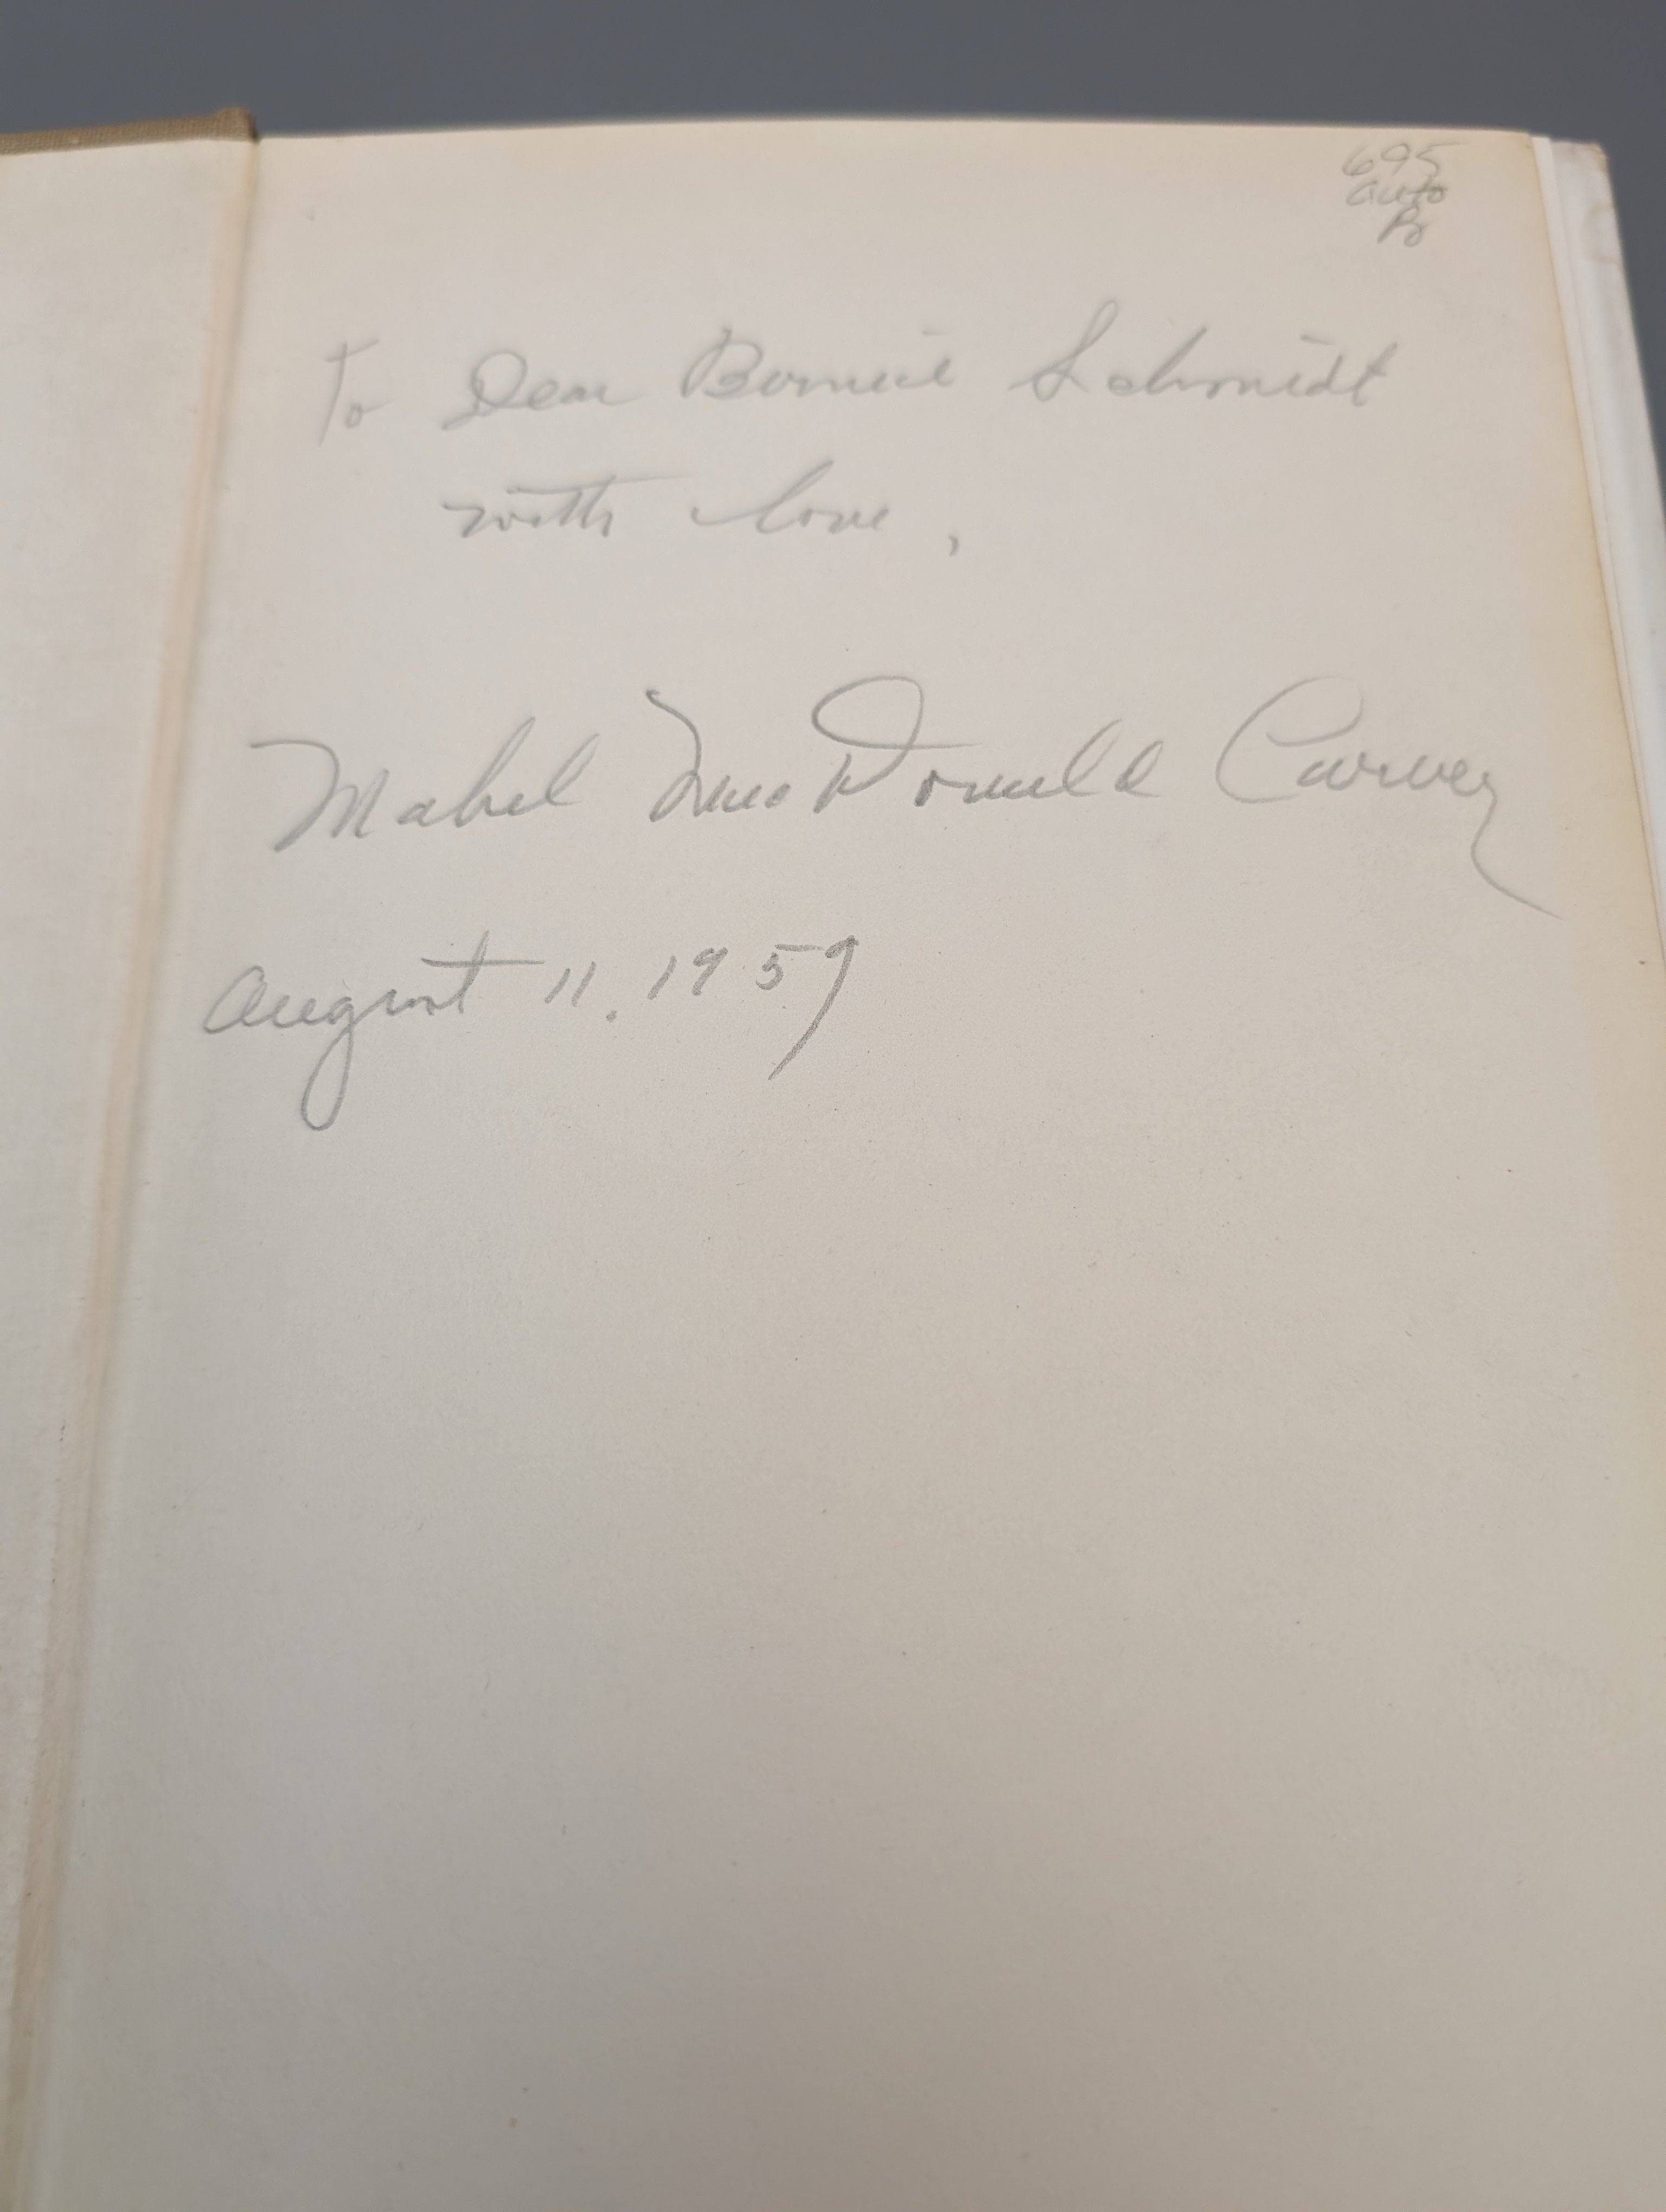 695
auto
To Dear Bonnie Schmidt
with love,
Mabel MacDonald Carver
August 11, 1959